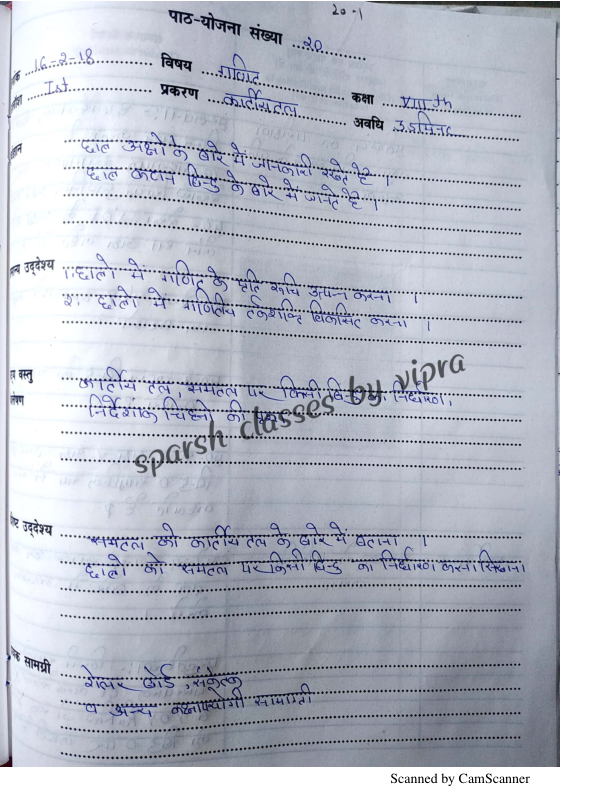 20-1
पाठ-योजना संख्या 20
क 16-2-18 विषय गणित
Ist प्रकरण कार्तीय तल कक्षा VIII th
अवधि 35 मिनट
छात्र अक्षो के बारे में जानकारी रखते है ।
छात्र कटान बिन्दु के बारे में जानते है ।
न्य उद्देश्य 1. छात्रो में गणित के प्रति रूचि उत्पन्न करना ।
2. छात्रो में गणितीय तर्कशक्ति विकसित करना ।
वस्तु कार्तीय तल, समतल पर किसी बिन्दु का निर्धारण,
निर्देशांक चिह्नो की
sparsh classes by vipra
उद्देश्य समतल को कार्तीय तल के बारे में बताना ।
छात्रो को समतल पर किसी बिन्दु का निर्धारण करना सिखाना
क सामग्री रोलर बोर्ड, संकेतक
व अन्य कक्षापयोगी सामाग्री
Scanned by CamScanner